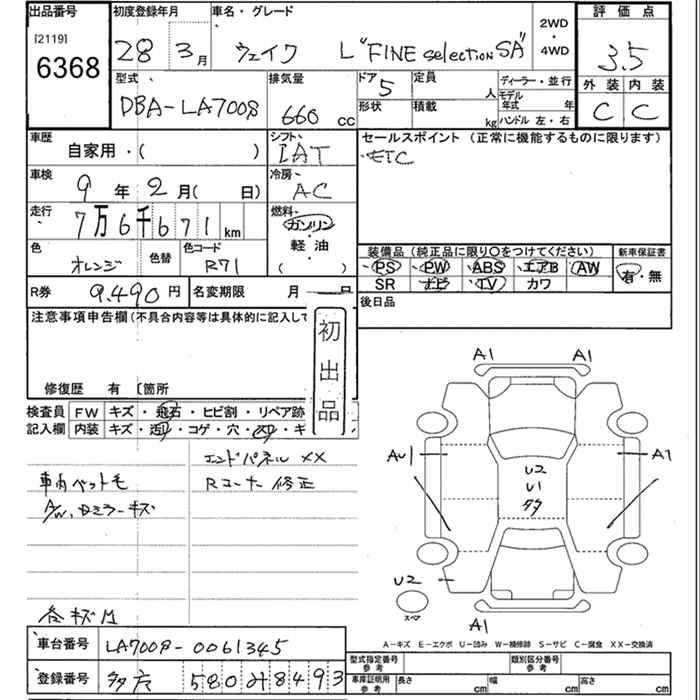 出品番号 初度登録年月 車名・グレード 2WD・4WD 評価点
[2119]
6368
28年 3月 ウェイク L "FINE selection SA" 3.5
型式 排気量 ドア 定員 ディーラー・並行 外装 内装
DBA-LA700S 660 cc 5 人 モデル年式 年 C C
形状 積載 kg ハンドル 左・右
車歴 シフト セールスポイント (正常に機能するものに限ります)
自家用・( ) IAT ・ETC
車検 冷房
9年 2月( 日) AC
走行 燃料
7万6千671km ガソリン・軽油
色 色替 色コード ( )
オレンジ R71
装備品 (純正品に限り〇をつけてください) 新車保証書
・PS ・PW ・ABS ・エアB AW 有・無
SR ナビ TV カワ
R券 9.490円 名変期限 月 日 後日品
注意事項申告欄(不具合内容等は具体的に記入して
初出品
修復歴 有 [箇所
検査員 FW キズ・飛石・ヒビ割・リペア跡
記入欄 内装 キズ・汚レ・コゲ・穴・スレ・キ
エンドパネル XX
車内ペット毛 Rコーナー修正
A/W、Dミラーキズ
各キズ凹
A1 A1
AU1 A1
U2
U1
タタ
U2
スペア
A1
A-キズ E-エクボ U-凹み W-補修跡 S-サビ C-腐食 XX-交換済
車台番号 LA700S-0061345
登録番号 580 8493
型式指定番号 参考 類別区分番号 参考
車庫証明用 参考 長さ cm 幅 cm 高さ cm